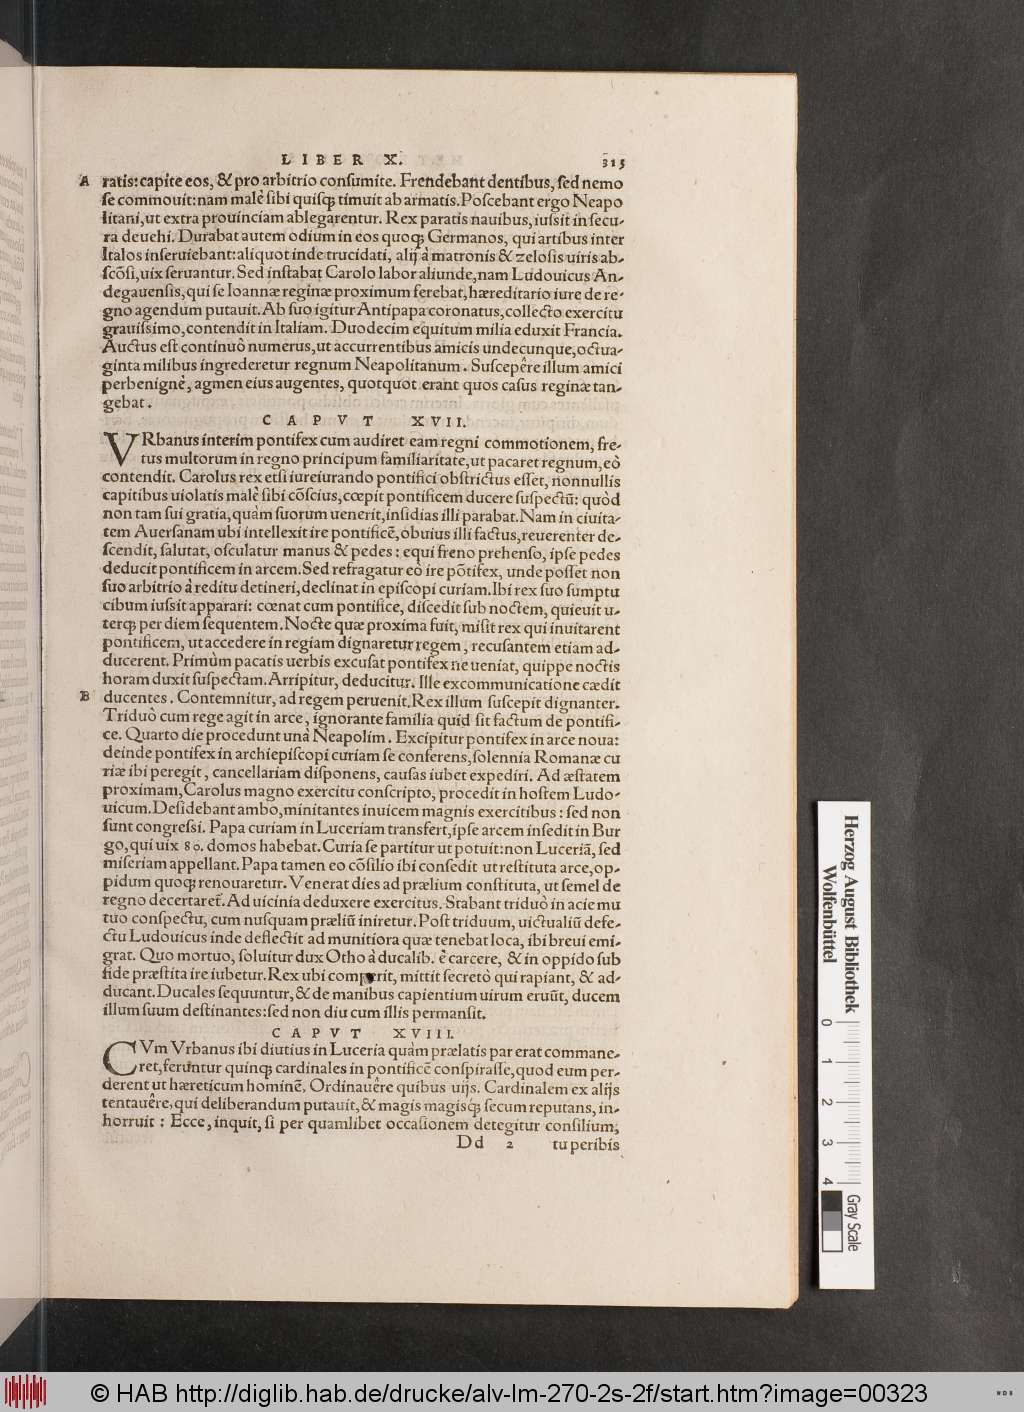 LIBER X. 315
A ratis: capite eos, & pro arbitrio consumite. Frendebant dentibus, sed nemo
se commouit: nam malè sibi quisq; timuit ab armatis. Poscebant ergo Neapo
litani, ut extra prouinciam ablegarentur. Rex paratis nauibus, iussit in secu-
ra deuehi. Durabat autem odium in eos quoq; Germanos, qui artibus inter
Italos inseruiebant: aliquot inde trucidati, alij à matronis & zelosis uiris ab-
scõsi, uix seruantur. Sed instabat Carolo labor aliunde, nam Ludouicus An-
degauensis, qui se Ioannæ reginæ proximum ferebat, hæreditario iure de re-
gno agendum putauit. Ab suo igitur Antipapa coronatus, collecto exercitu
grauissimo, contendit in Italiam. Duodecim equitum milia eduxit Francia.
Auctus est continuò numerus, ut accurrentibus amicis undecunque, octua-
ginta milibus ingrederetur regnum Neapolitanum. Suscepêre illum amici
perbenignè, agmen eius augentes, quotquot erant quos casus reginæ tan-
gebat.
CAPVT XVII.
VRbanus interim pontifex cum audiret eam regni commotionem, fre-
tus multorum in regno principum familiaritate, ut pacaret regnum, eò
contendit. Carolus rex etsi iureiurando pontifici obstrictus esset, nonnullis
capitibus uiolatis malè sibi cõscius, cœpit pontificem ducere suspectũ: quòd
non tam sui gratia, quàm suorum uenerit, insidias illi parabat. Nam in ciuita-
tem Auersanam ubi intellexit ire pontificẽ, obuius illi factus, reuerenter de-
scendit, salutat, osculatur manus & pedes: equi freno prehenso, ipse pedes
deducit pontificem in arcem. Sed refragatur eò ire põtifex, unde posset non
suo arbitrio à reditu detineri, declinat in episcopi curiam. Ibi rex suo sumptu
cibum iussit apparari: cœnat cum pontifice, discedit sub noctem, quieuit u-
terq; per diem sequentem. Nocte quæ proxima fuit, misit rex qui inuitarent
pontificem, ut accedere in regiam dignaretur regem, recusantem etiam ad-
ducerent. Primùm pacatis uerbis excusat pontifex ne ueniat, quippe noctis
horam duxit suspectam. Arripitur, deducitur. Ille excommunicatione cædit
B ducentes. Contemnitur, ad regem peruenit. Rex illum suscepit dignanter.
Triduò cum rege agit in arce, ignorante familia quid sit factum de pontifi-
ce. Quarto die procedunt unà Neapolim. Excipitur pontifex in arce noua:
deinde pontifex in archiepiscopi curiam se conferens, solennia Romanæ cu
riæ ibi peregit, cancellariam disponens, causas iubet expediri. Ad æstatem
proximam, Carolus magno exercitu conscripto, procedit in hostem Ludo-
uicum. Desidebant ambo, minitantes inuicem magnis exercitibus: sed non
sunt congressi. Papa curiam in Luceriam transfert, ipse arcem insedit in Bur
go, qui uix 80. domos habebat. Curia se partitur ut potuit: non Luceriã, sed
miseriam appellant. Papa tamen eo cõsilio ibi consedit ut restituta arce, op-
pidum quoq; renouaretur. Venerat dies ad prælium constituta, ut semel de
regno decertaret̃. Ad uicinia deduxere exercitus. Stabant triduò in acie mu
tuo conspectu, cum nusquam præliũ iniretur. Post triduum, uictualiũ defe-
ctu Ludouicus inde deflectit ad munitiora quæ tenebat loca, ibi breui emi-
grat. Quo mortuo, soluitur dux Otho à ducalib. ẽ carcere, & in oppido sub
fide præstita ire iubetur. Rex ubi comperit, mittit secretò qui rapiant, & ad-
ducant. Ducales sequuntur, & de manibus capientium uirum eruũt, ducem
illum suum destinantes: sed non diu cum illis permansit.
CAPVT XVIII.
CVm Vrbanus ibi diutius in Luceria quàm prælatis par erat commane-
ret, feruntur quinq; cardinales in pontificẽ conspirasse, quod eum per-
derent ut hæreticum hominẽ. Ordinauêre quibus uijs. Cardinalem ex alijs
tentauêre, qui deliberandum putauit, & magis magisq; secum reputans, in-
horruit: Ecce, inquit, si per quamlibet occasionem detegitur consilium,
Dd 2 tu peribis
Herzog August Bibliothek
Wolfenbüttel
0 1 2 3 4
Gray Scale
© HAB http://diglib.hab.de/drucke/alv-lm-270-2s-2f/start.htm?image=00323